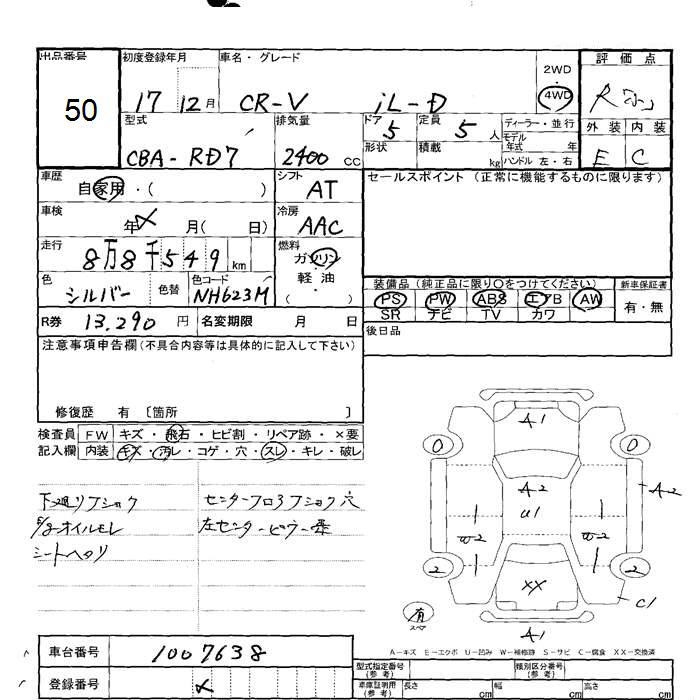 出品番号 初度登録年月 車名・グレード 評価点
50
17 12月 CR-V iL-D
2WD
4WD
R
型式 排気量 ドア 5 定員 5人 ディーラー・並行
モデル年式 年
外装 内装
CBA-RD7 2400 CC 形状 積載 kg ハンドル 左・右
E C
車歴 シフト セールスポイント (正常に機能するものに限ります)
自家用・( ) AT
車検 冷房
年 月( 日) AAC
走行 燃料
8万8千549km ガソリン・
軽油・
( )
色 色替 色コード
シルバー NH623M
装備品 (純正品に限り○をつけてください) 新車保証書
PS PW ABS エアB AW 有・無
SR ナビ TV カワ
R券 13,290円 名変期限 月 日
後日品
注意事項申告欄(不具合内容等は具体的に記入して下さい)
修復歴 有 〔箇所 〕
検査員 FW キズ・飛石・ヒビ割・リペア跡・×要
記入欄 内装 キズ・汚レ・コゲ・穴・スレ・キレ・破レ
下廻りフショク センターフロアフショク穴
オイルモレ 左センターピラー
シートヘタリ
A1
0 0
A2
A2
U1
W2 W2
2 2
XX
C1
有
スペア
A1
A-キズ E-エクボ U-凹み W-補修跡 S-サビ C-腐食 XX-交換済
車台番号 1007638
型式指定番号 (参考) 類別区分番号 (参考)
登録番号
車庫証明用 (参考) 長さ cm 幅 cm 高さ cm